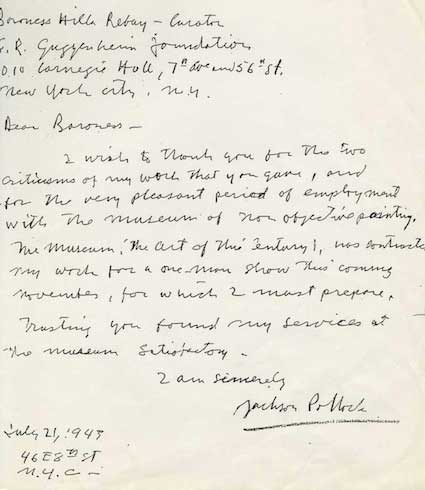 Baroness Hilla Rebay – Curator
S. R. Guggenheim Foundation
1010 Carnegie Hall, 7th Ave and 56th St.
New York City, N.Y.
Dear Baroness –
I wish to thank you for the two
criticisms of my work that you gave, and
for the very pleasant period of employment
with the museum of non objective painting.
The Museum, 'The Art of This Century', has contracted
my work for a one-man show this coming
november, for which I must prepare.
Trusting you found my services at
the museum satisfactory.
I am sincerely
Jackson Pollock
July 21, 1943
46 E 8th St
N.Y.C –